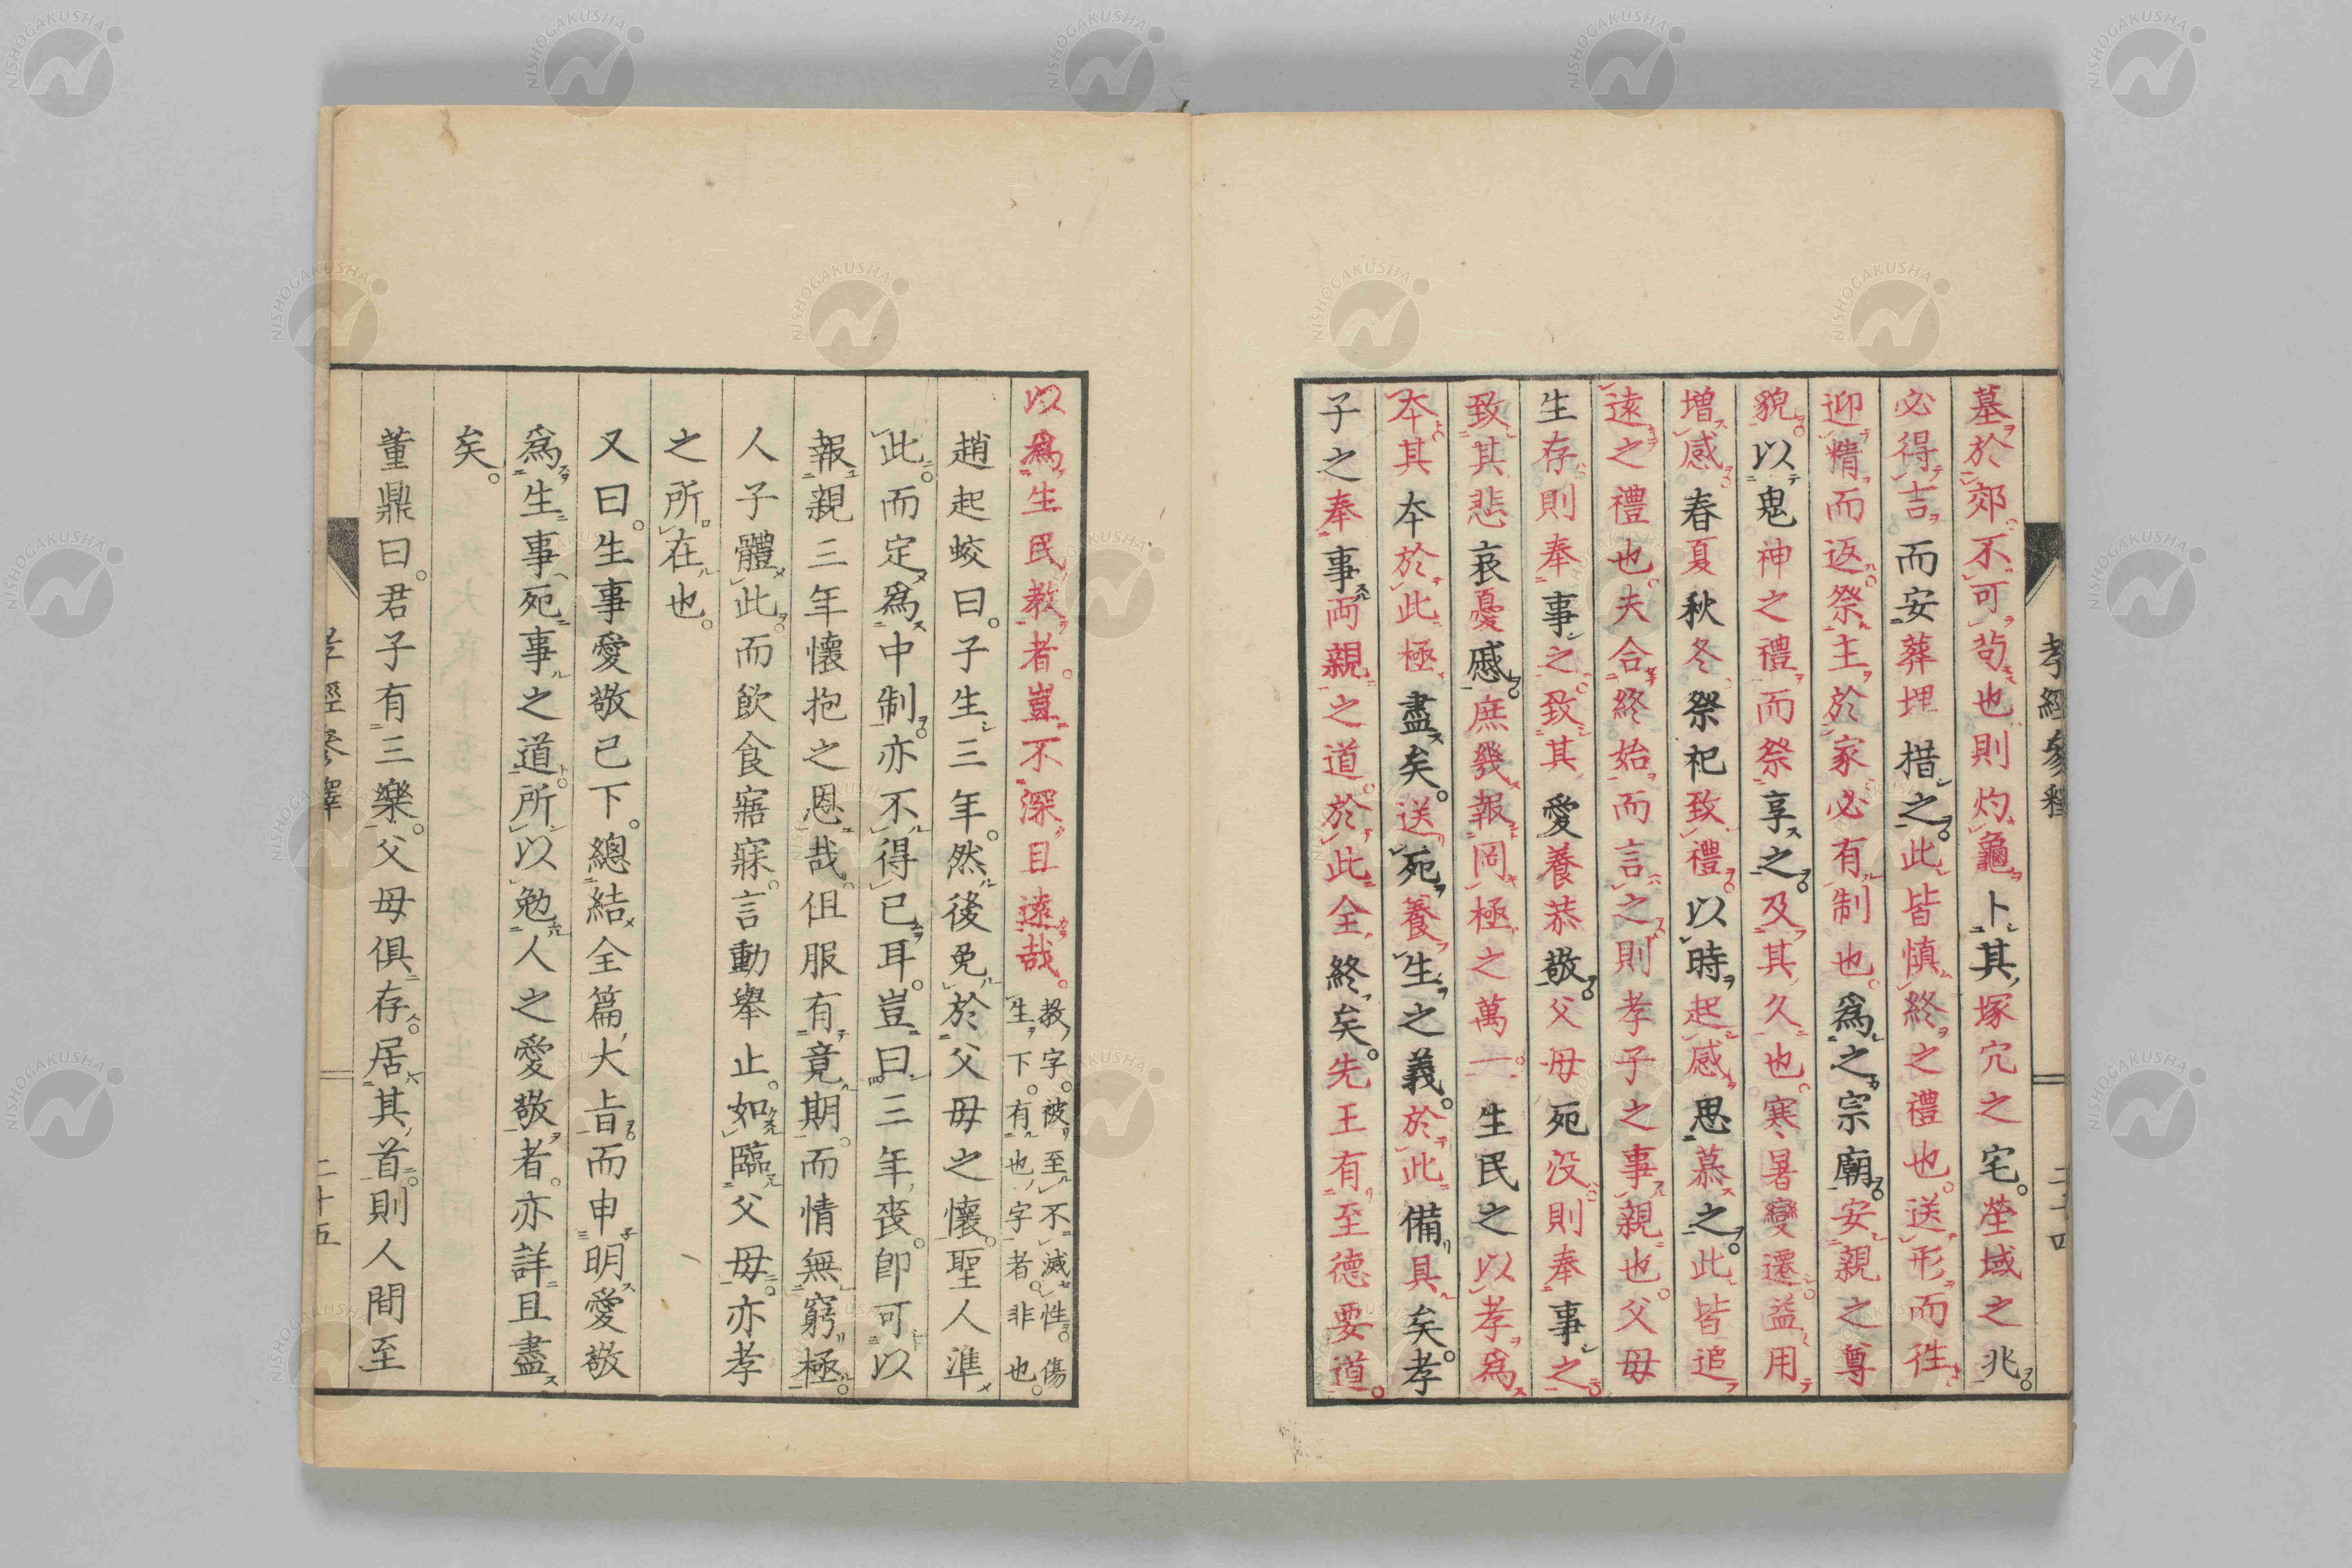 墓於郊不可苟也則灼龜卜其塚穴之宅塋域之兆
必得吉而安葬埋措之此皆慎終之禮也送形而往
迎精而返祭主於家必有制也為之宗廟安親之尊
貌以鬼神之禮而祭享之及其久也寒暑變遷益用
増感春夏秋冬祭祀致禮以時起感思慕之此皆追
遠之禮也夫合終始而言之則孝子之事親也父母
生存則奉事之致其愛養恭敬父母死没則奉事之
致其悲哀憂慼庶幾報罔極之萬一生民之以孝為
本其本於此極盡矣送死養生之義於此備具矣孝
子之奉事両親之道於此全終矣先王有至德要道
以為生民教者豈不深且遠哉。教字。被至不滅性。傷
生下。有也字者。非也。
趙起蛟曰。子生三年。然後免於父母之懷。聖人準
此。而定為中制。亦不得已耳。豈曰三年喪。即可以
報親三年懷抱之恩哉。但服有竟期。而情無窮極。
人子體此。而飲食寤寐。言動舉止。如臨父母。亦孝
之所在也。
又曰。生事愛敬已下。總結全篇大旨。而申明愛敬
為生事死事之道。所以勉人之愛敬者。亦詳且盡
矣。
董鼎曰。君子有三樂。父母俱存。居其首。則人間至
二十五
NISHOGAKUSHA